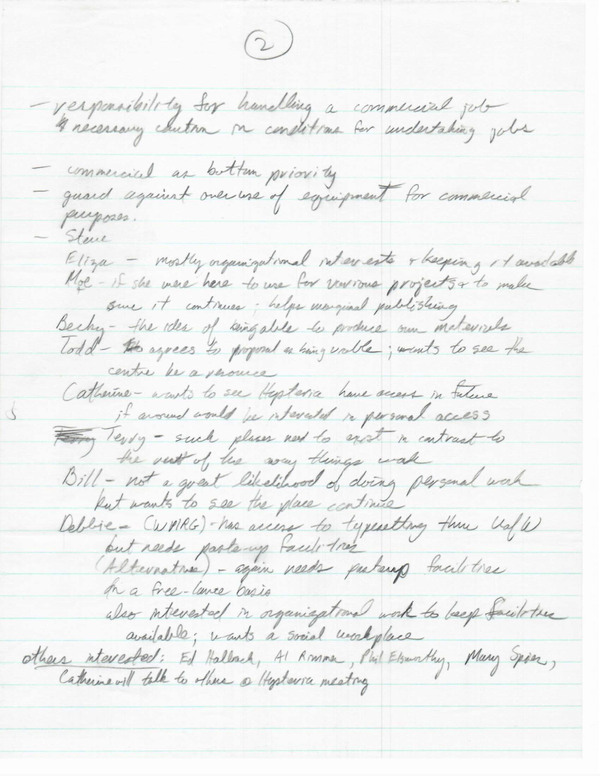 2
- responsibility for handling a commercial job
& necessary caution in conditions for undertaking jobs
- commercial as bottom priority
- guard against overuse of equipment for commercial
purposes.
- Steve
Eliza - mostly organizational interests + keeping it available
Moe - if she were here to use for various projects + to make
sure it continues; helps marginal publishing
Becky - the idea of being able to produce own materials
Todd - agrees to proposal as being viable; wants to see the
centre be a resource
Catherine - wants to see Hysteria have access in future
if around would be interested in personal access
Terry - such places need to exist in contrast to
the rest of the way things work
Bill - not a great likelihood of doing personal work
but wants to see the place continue
Debbie - (WPIRG) - has access to typesetting thru UofW
but needs paste-up facilities
(Alternatives) - again needs pasteup facilities
on a free-lance basis
also interested in organizational work to keep facilities
available; wants a social workplace
others interested: Ed Hallock, Al Rimmer, Phil Elsworthy, Mary Spier,
Catherine will talk to others @ Hysteria meeting